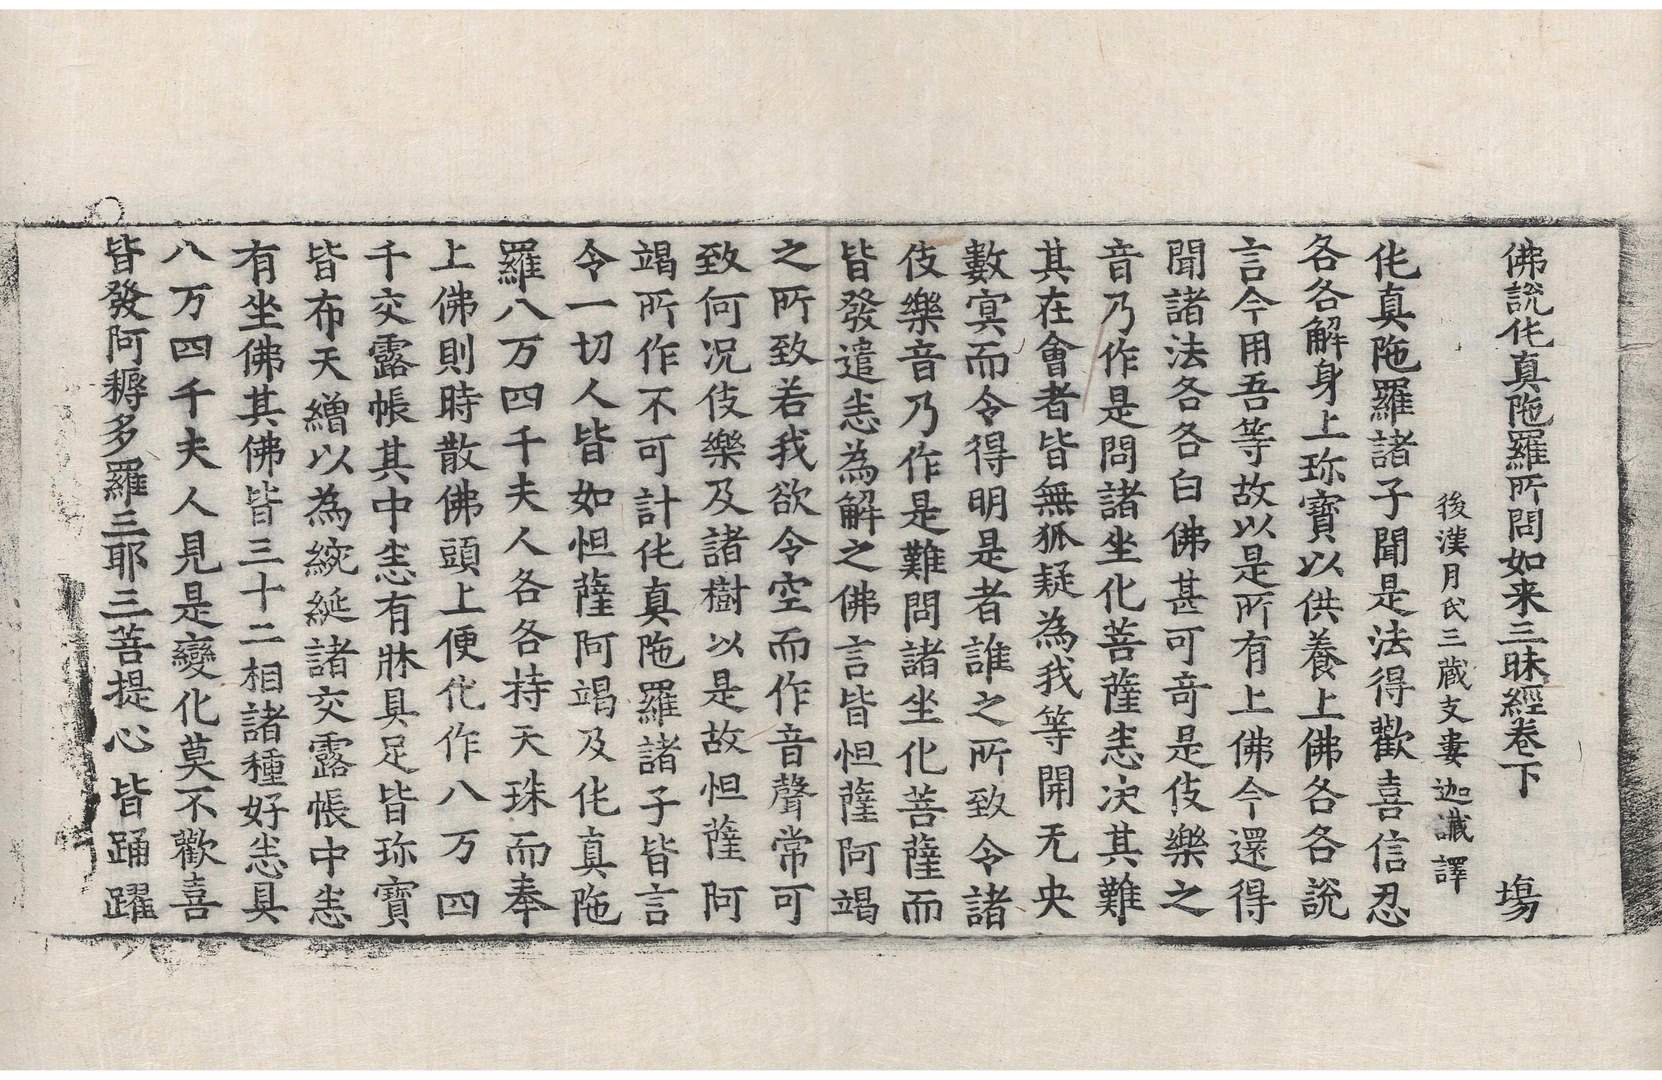 佛說伅真陁羅所問如来三昧經卷下 塲
後漢月氏三藏支婁迦讖譯
伅真陁羅諸子聞是法得歡喜信忍
各各解身上珎寶以供養上佛各各說
言今用吾等故以是所有上佛今還得
聞諸法各各白佛甚可竒是伎樂之
音乃作是問諸坐化菩薩悉決其難
其在會者皆無狐疑為我等開无央
數㝠而令得明是者誰之所致令諸
伎樂音乃作是難問諸坐化菩薩而
皆發遣悉為解之佛言皆怛薩阿竭
之所致若我欲令空而作音聲常可
致何况伎樂及諸樹以是故怛薩阿
竭所作不可計伅真陁羅諸子皆言
令一切人皆如怛薩阿竭及伅真陁
羅八万四千夫人各各持天珠而奉
上佛則時散佛頭上便化作八万四
千交露帳其中悉有牀具足皆珎寶
皆布天繒以為綩綖諸交露帳中悉
有坐佛其佛皆三十二相諸種好悉具
八万四千夫人見是變化莫不歡喜
皆發阿耨多羅三耶三菩提心皆踊躍